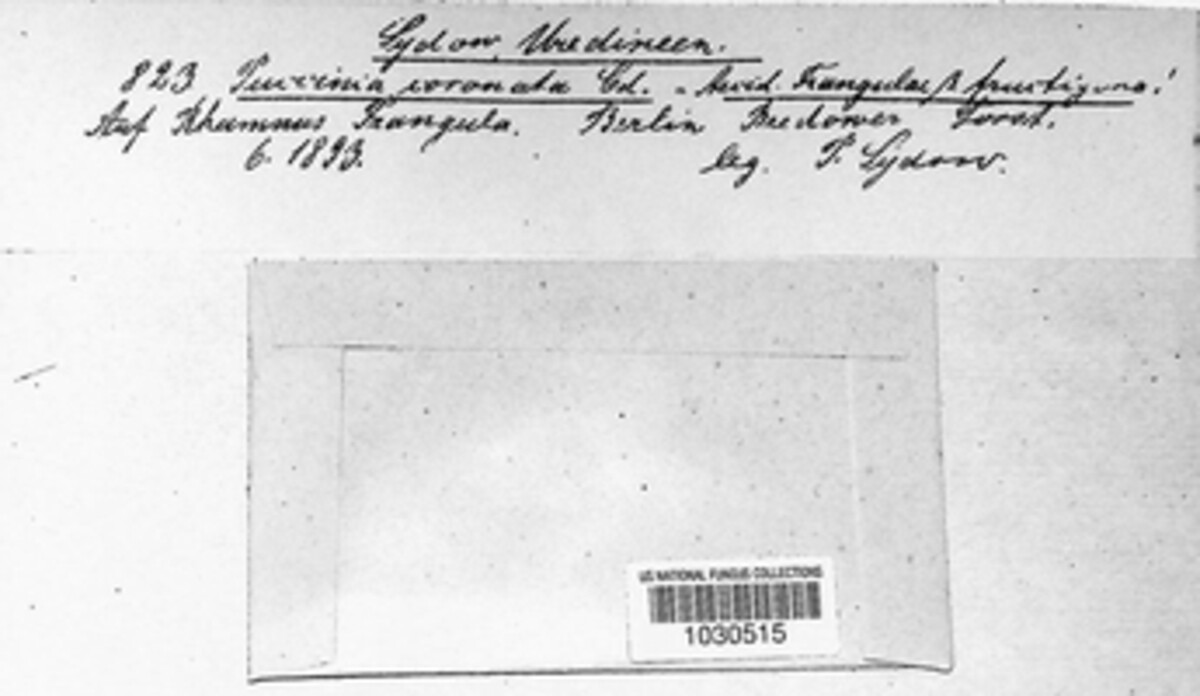 Sydow, Uredineen.
823 Puccinia coronata Cd. - Aecid. Frangulae β fructigena!
Auf Rhamnus Frangula. Berlin Bredower Forst.
6. 1893. leg. P. Sydow.
US NATIONAL FUNGUS COLLECTIONS
1030515